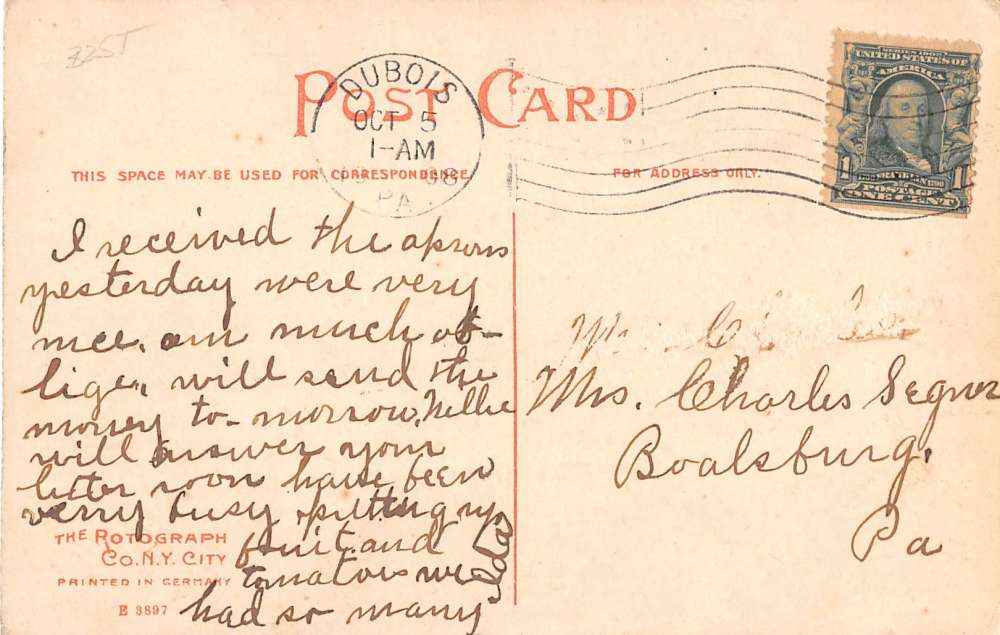 225T
POST CARD
DUBOIS
OCT 5
1-AM
08
PA
SERIES 1902
UNITED STATES OF
AMERICA
1 1
POSTAGE
ONE CENT
THIS SPACE MAY BE USED FOR CORRESPONDENCE
FOR ADDRESS ONLY.
I received the aprons
yesterday were very
nice. am much ob-
lige, will send the
money to-morrow, Nellie
will answer your
letter soon have been
verry busy putting up
fruit and
tomatoes we
had so many
Ida
Mrs. Charles Segner
Boalsburg,
Pa
THE ROTOGRAPH
CO. N.Y. CITY
PRINTED IN GERMANY
E 3897